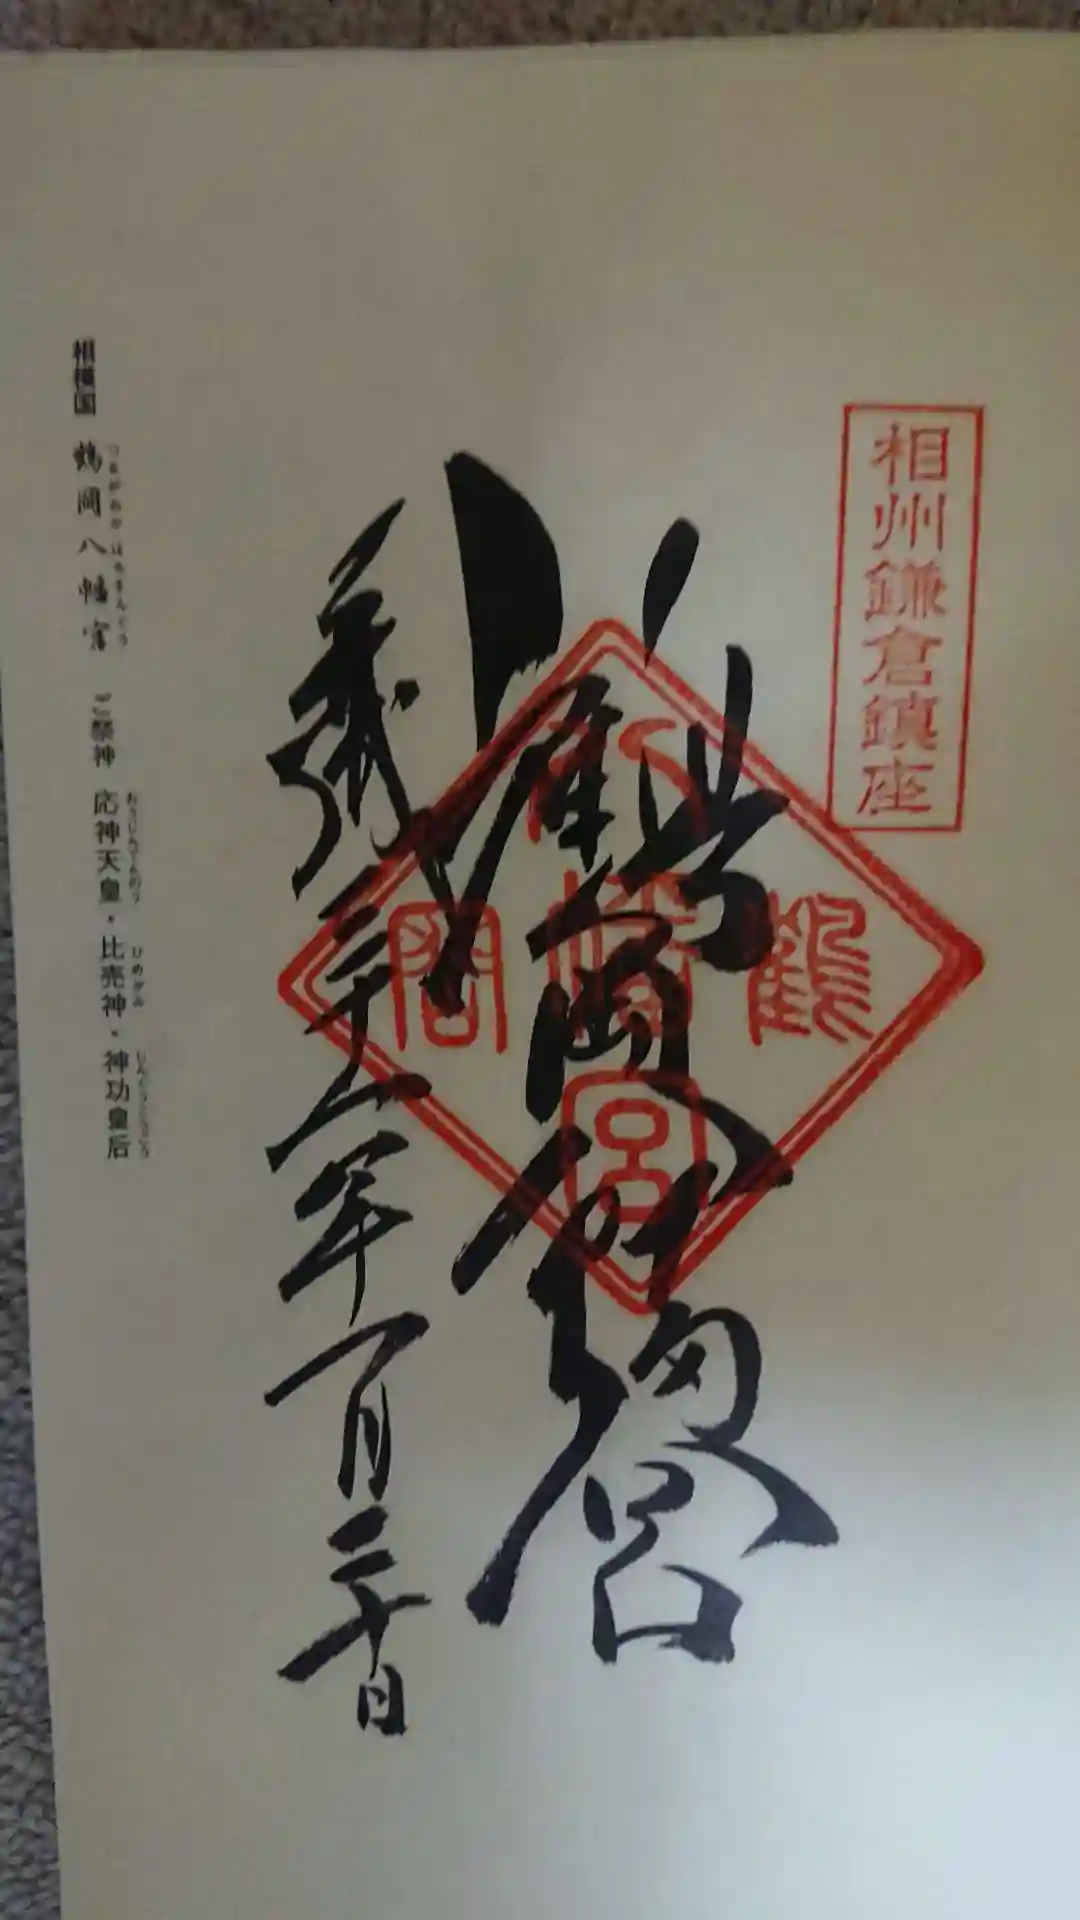 相州鎌倉鎮座
鶴岡八幡宮
鶴岡八幡宮
年一月二十日
相模国 鶴岡八幡宮 ご祭神 応神天皇・比売神・神功皇后
つるがおかはちまんぐう おうじんてんのう ひめがみ じんぐうこうごう